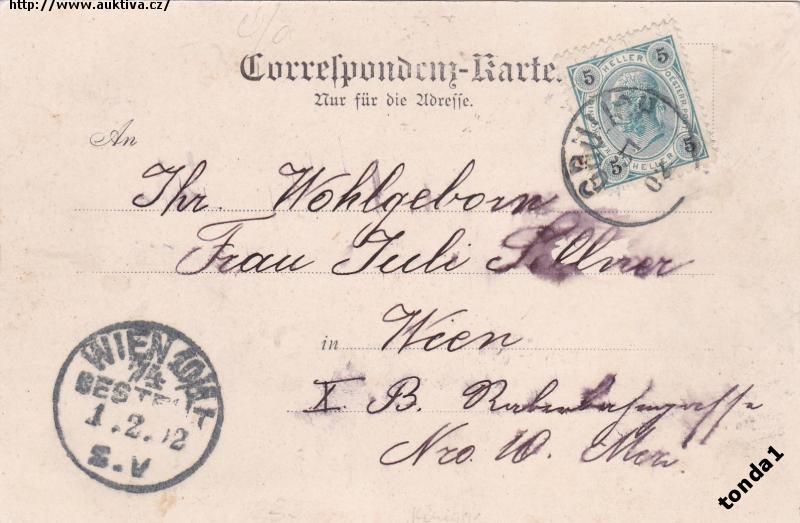 http://www.auktiva.cz/
Correspondenz-Karte.
Nur für die Adresse.
5 HELLER 5
5 HELLER 5
An
Ihr. Wohlgeborn
Frau Juli Sellner
in Wien
X B.
Nro. 10.
WIEN 10/1
BESTELLT
1.2.02
tonda1